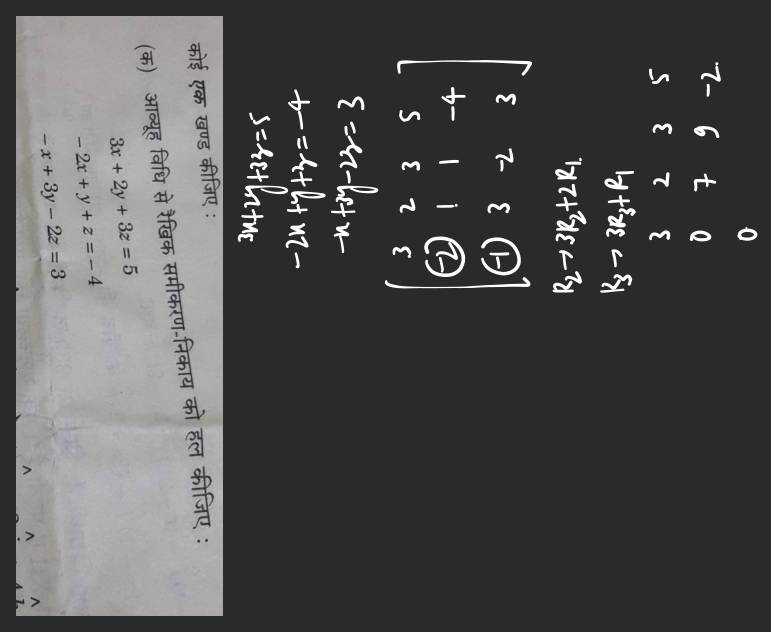 कोई एक खण्ड कीजिए :
(क) आव्यूह विधि से रैखिक समीकरण-निकाय को हल कीजिए :
3x + 2y + 3z = 5
- 2x + y + z = - 4
- x + 3y - 2z = 3
3x+2y+3z=5
-2x+y+z=-4
-x+3y-2z=3
3 2 3 5
-2 1 1 -4
-1 3 -2 3
R2→3R2+2R1
R3→3R3+R1
3 2 3 5
0 7 9 -2
0